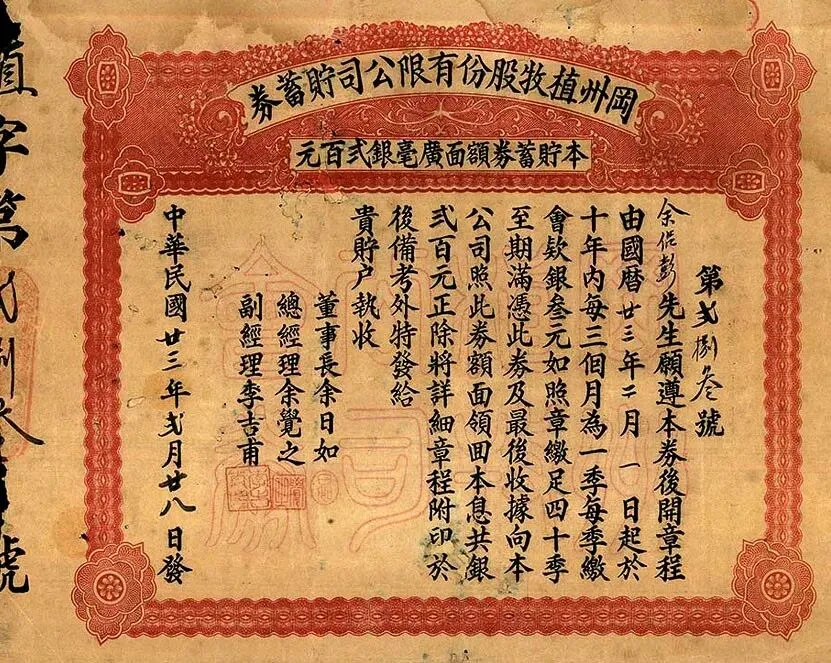 岡州植牧股份有限公司貯蓄券
本貯蓄券額面廣毫銀弍百元
第弍捌叁號
余作彭先生願遵本券後開章程
由國曆廿三年二月一日起於
十年內每三個月為一季每季繳
會欵銀叁元如照章繳足四十季
至期滿憑此券及最後收據向本
公司照此券額面領回本息共銀
弍百元正除將詳細章程附印於
後備考外特發給
貴貯户執收
董事長余日如
總經理余覺之
副經理李吉甫
中華民國廿三年弍月廿八日發
字第弍捌叁號